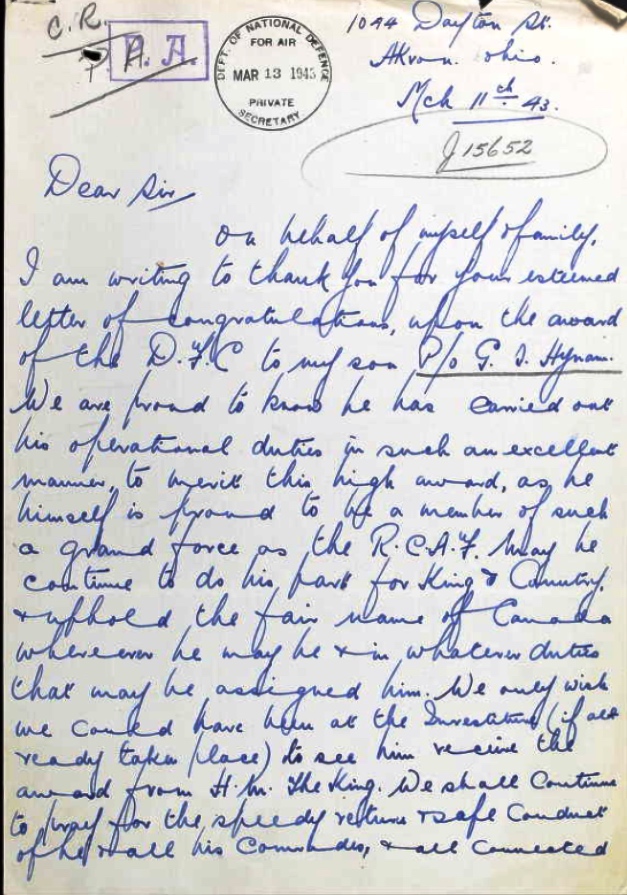 C.R.
P.A.
P. A.
DEPT. OF NATIONAL DEFENCE
FOR AIR
MAR 13 1943
PRIVATE
SECRETARY
1044 Dayton St.
Akron. Ohio.
Mch 11th 43.
J15652
Dear Sir
On behalf of myself & family,
I am writing to thank you for your esteemed
letter of congratulations, upon the award
of the D.F.C to my son P/o G. I. Hynam.
We are proud to know he has carried out
his operational duties in such an excellent
manner, to merit this high award, as he
himself is proud to be a member of such
a grand force as the R.C.A.F. May he
continue to do his part for King & Country,
& uphold the fair name of Canada
wherever he may be & in whatever duties
that may be assigned him. We only wish
we could have been at the Investiture (if all
ready taken place) to see him receive the
award from H.M. The King. We shall Continue
to pray for the speedy return & safe Conduct
of he & all his Comrades, & all Connected